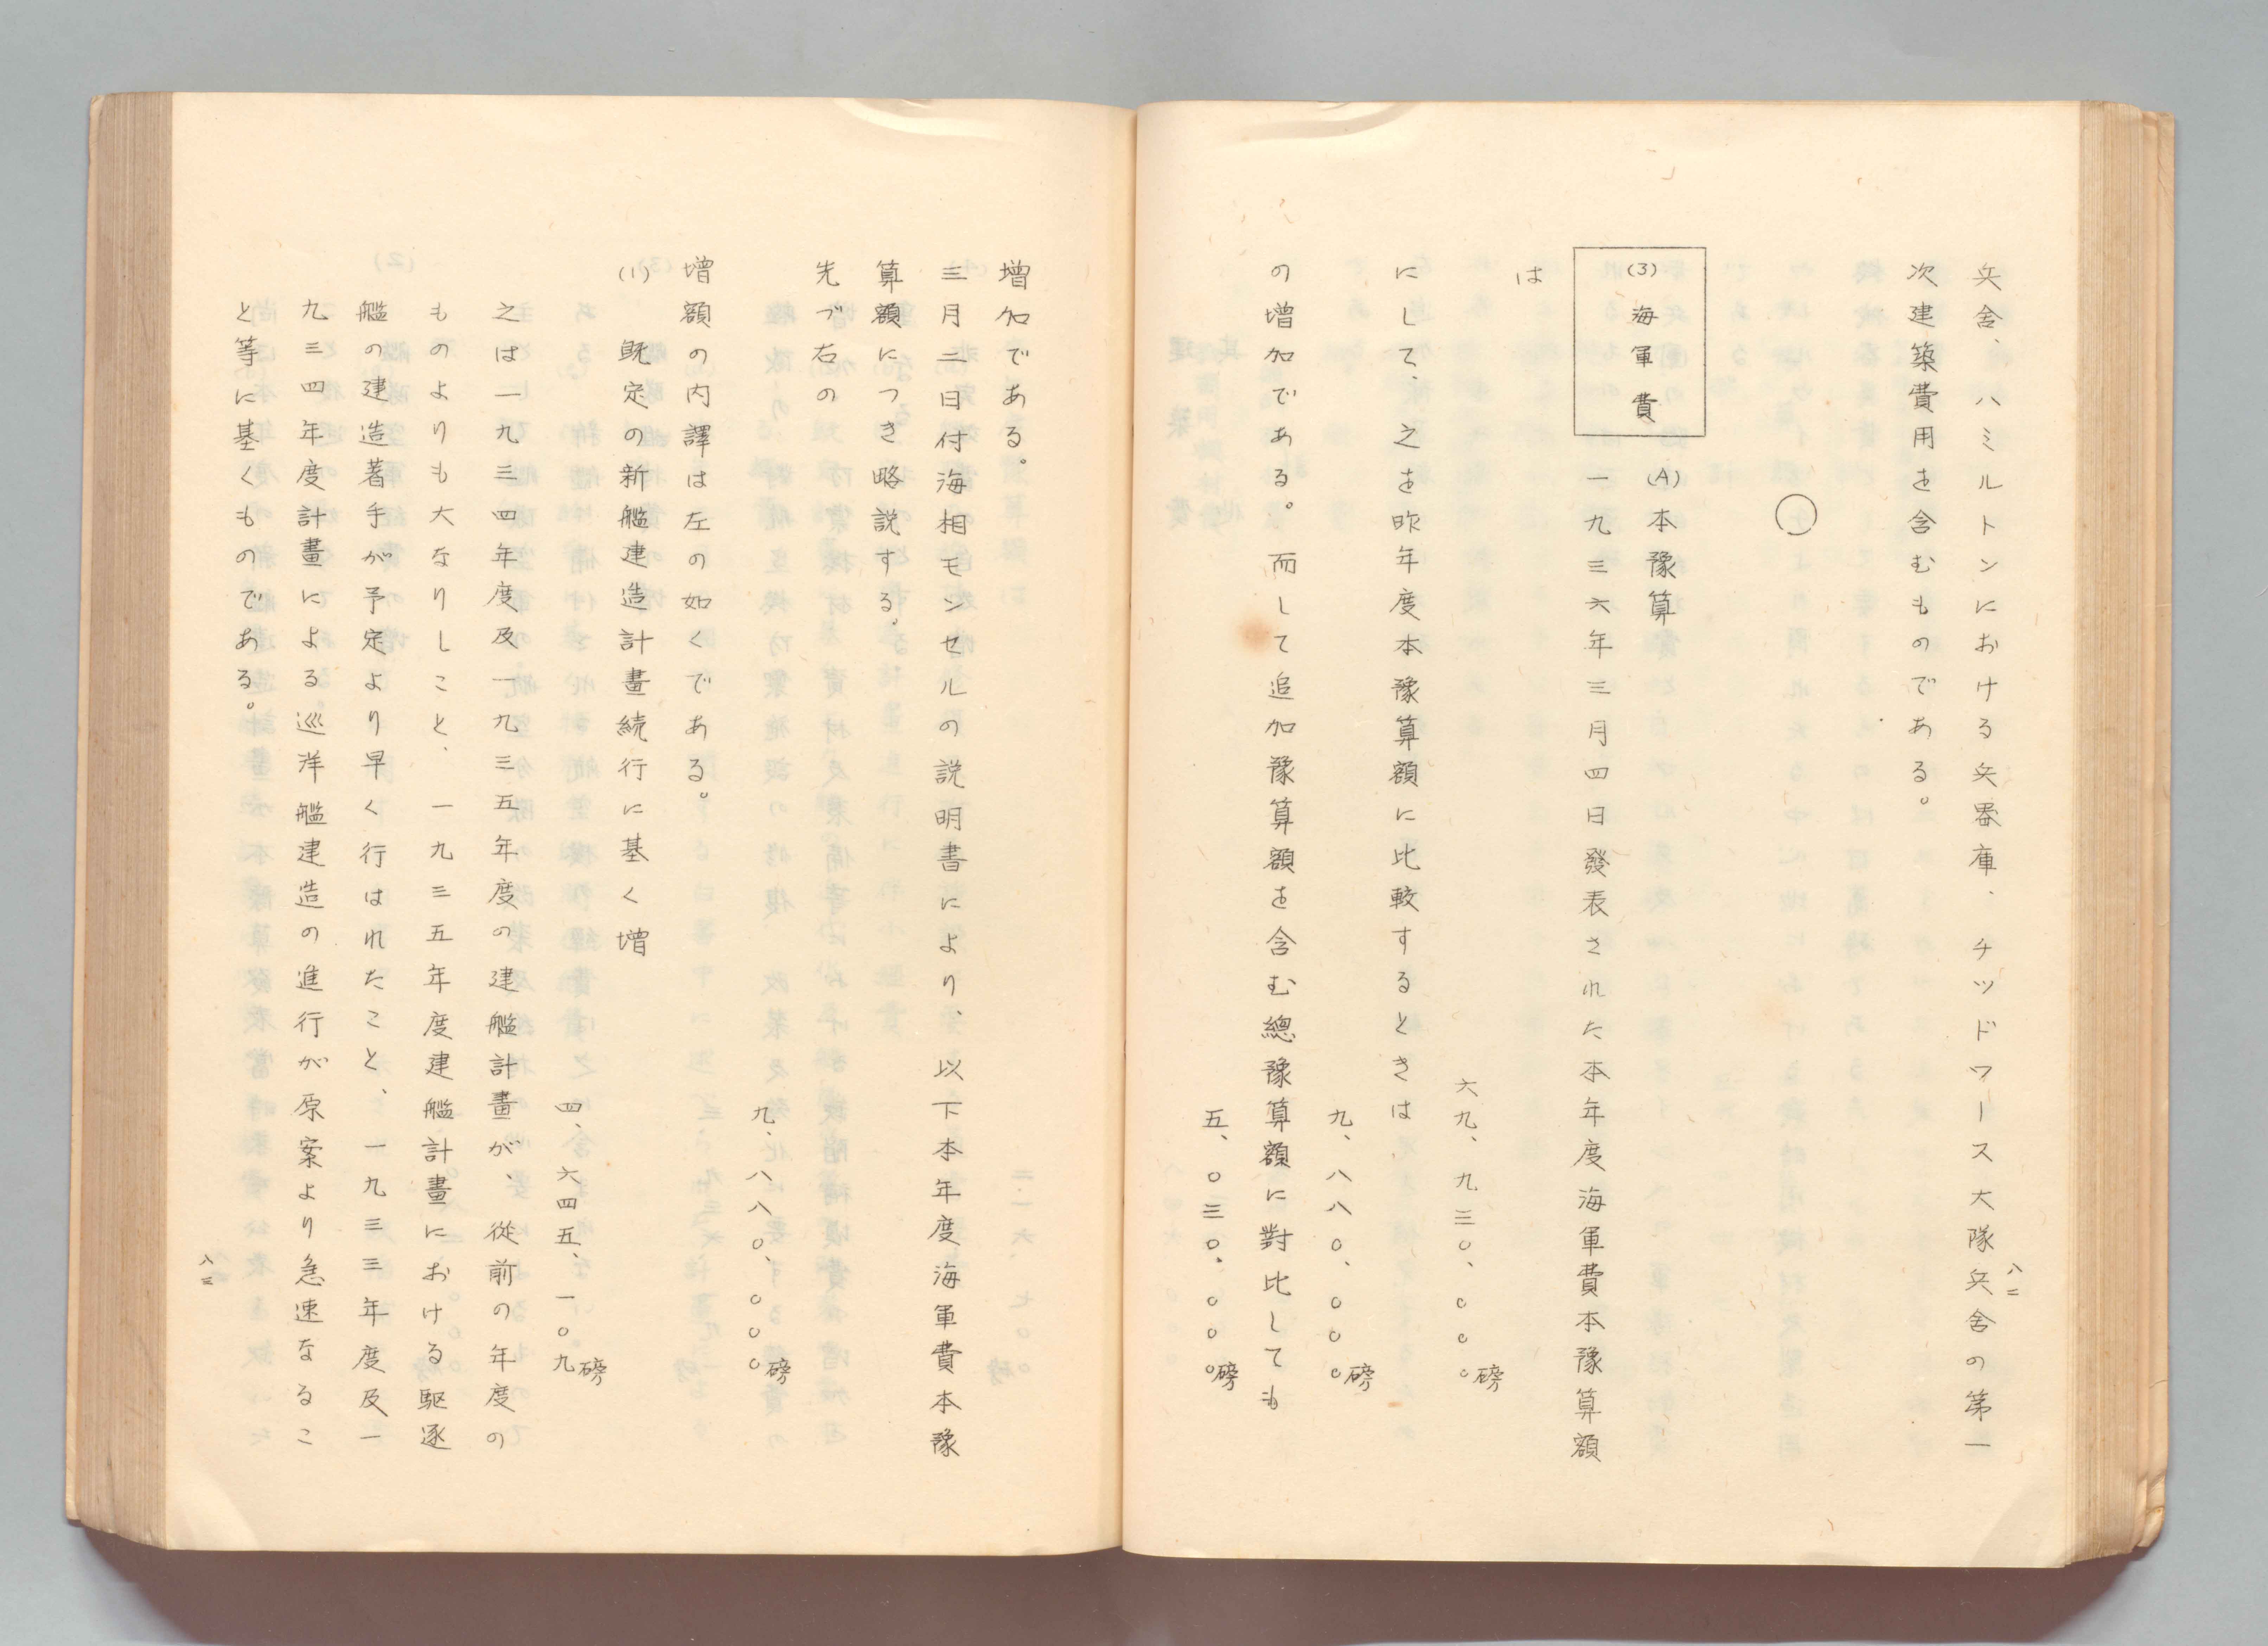 兵舎、ハミルトンにおける兵器庫、チッドワース大隊兵舎の第一
次建築費用を含むものである。
○
(3) 海軍費
(A) 本豫算
一九三六年三月四日發表された本年度海軍費本豫算額
は
六九、九三〇、〇〇〇磅
にして、之を昨年度本豫算額に比較するときは
九、八八〇、〇〇〇磅
の増加である。而して追加豫算額を含む總豫算額に對比しても
五、〇三〇、〇〇〇磅
八二
増加である。
三月二日付海相モンセルの説明書により、以下本年度海軍費本豫
算額につき略説する。
先づ右の
九、八八〇、〇〇〇磅
増額の内譯は左の如くである。
(1) 既定の新艦建造計畫続行に基く増
四、六四五、一〇九磅
之は一九三四年度及一九三五年度の建艦計畫が、從前の年度の
ものよりも大なりしこと、一九三五年度建艦計畫における駆逐
艦の建造著手が予定より早く行はれたこと、一九三三年度及一
九三四年度計畫による巡洋艦建造の進行が原案より急速なるこ
と等に基くものである。
八三